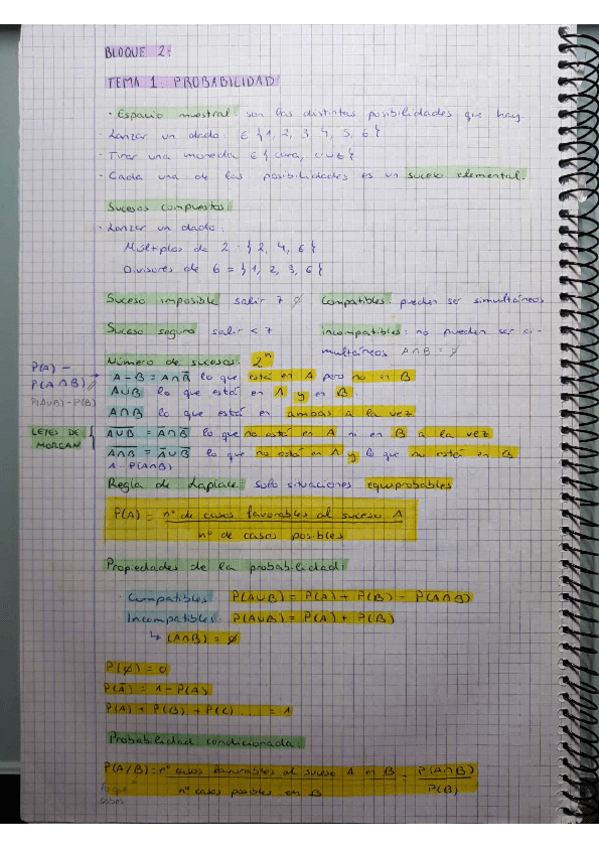 BLOQUE 2:
TEMA 1. PROBABILIDAD
· Espacio muestral: son las distintas posibilidades que hay.
· Lanzar un dado: E {1, 2, 3, 4, 5, 6}
· Tirar una moneda E {cara, cruz}
· Cada una de las posibilidades es un suceso elemental.
Sucesos compuestos:
· Lanzar un dado:
Múltiplos de 2 = {2, 4, 6}
Divisores de 6 = {1, 2, 3, 6}
Suceso imposible salir 7 ∅ Compatibles: pueden ser simultáneos
Suceso seguro salir < 7 incompatibles: no pueden ser si-
multáneos A∩B = ∅
Número de sucesos: 2ⁿ
P(A) - P(A∩B)
A - B = A∩B̅ lo que está en A pero no en B
P(A∪B) - P(B)
A∪B lo que está en A y en B
A∩B lo que está en ambas a la vez
LEYES DE MORGAN
A̅∪̅B̅ = A̅∩B̅ lo que no está en A ni en B a la vez
A̅∩̅B̅ = A̅∪B̅ lo que no está en A y lo que no está en B
1 - P(A∩B)
Regla de Laplace: solo situaciones equiprobables
P(A) = nº de casos favorables al suceso A
nº de casos posibles
Propiedades de la probabilidad:
· Compatibles: P(A∪B) = P(A) + P(B) - P(A∩B)
Incompatibles: P(A∪B) = P(A) + P(B)
↳ (A∩B) = ∅
P(∅) = 0
P(A̅) = 1 - P(A)
P(A) + P(B) + P(C) .... = 1
Probabilidad condicionada:
P(A/B) = nº casos favorables al suceso A en B = P(A∩B)
nº casos posibles en B P(B)
lo que sabes